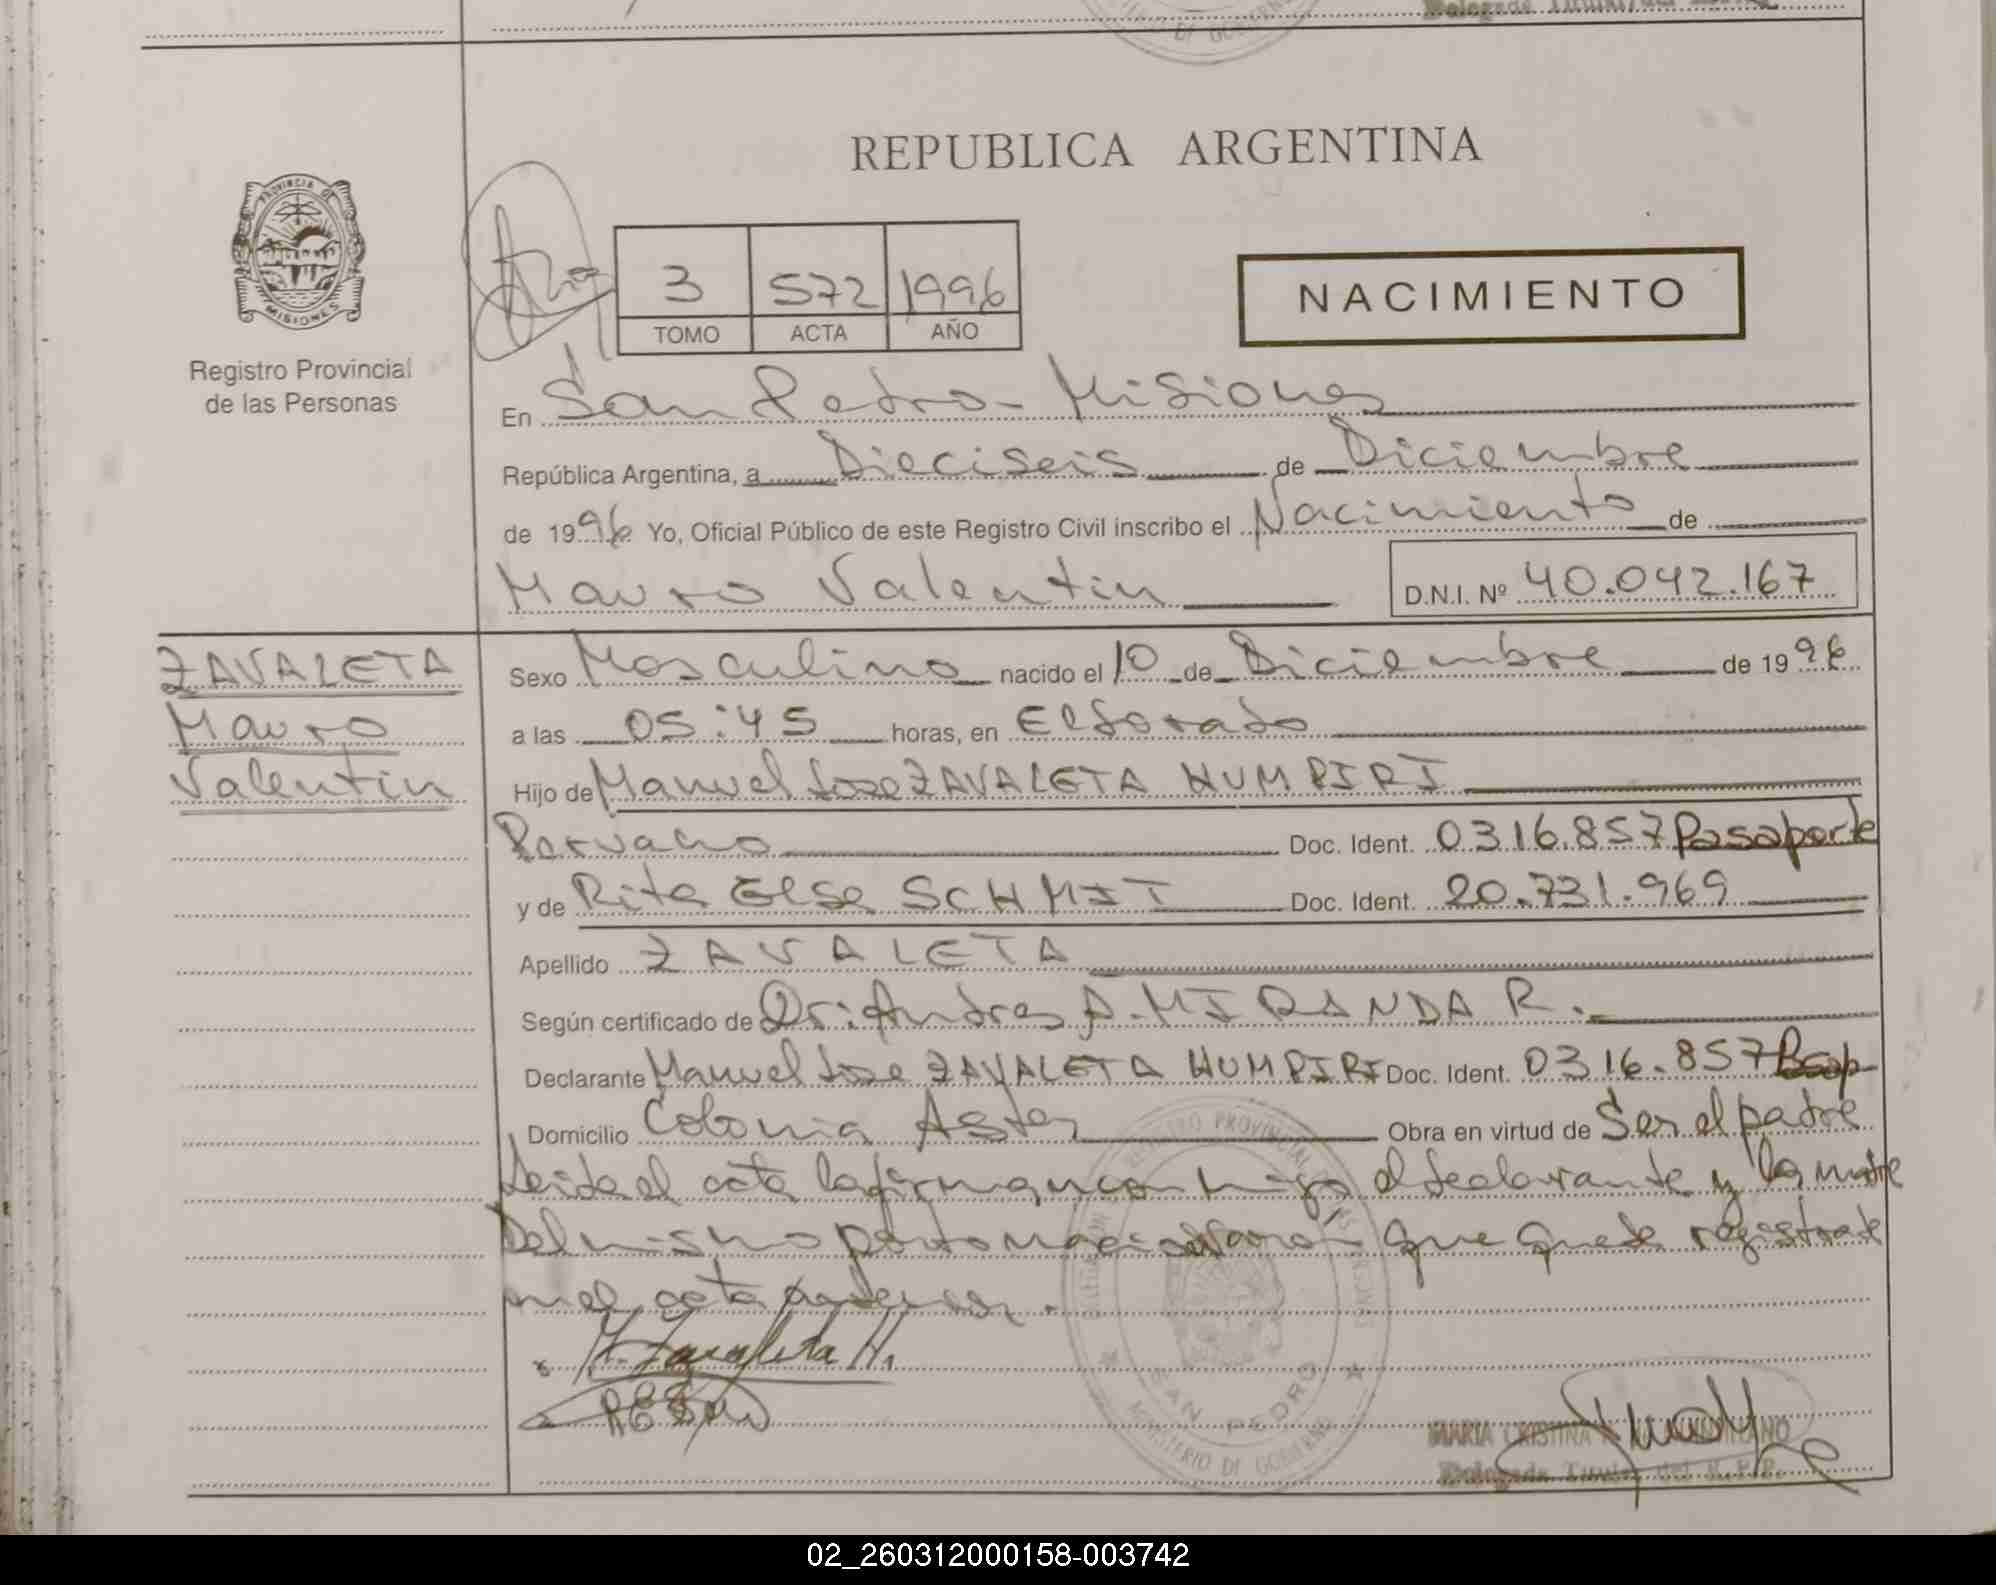 REPUBLICA ARGENTINA
PROVINCIA DE
MISIONES
Registro Provincial
de las Personas
3 572 1996
TOMO ACTA AÑO
NACIMIENTO
En San Pedro - Misiones
República Argentina, a Dieciseis de Diciembre
de 1996 Yo, Oficial Público de este Registro Civil inscribo el Nacimiento de
Mauro Valentin D.N.I. Nº 40.042.167
ZAVALETA
Mauro
Valentin
Sexo Masculino nacido el 10 de Diciembre de 1996
a las 05:45 horas, en Eldorado
Hijo de Manuel Jose ZAVALETA HUMPIRI
Peruano Doc. Ident. 0316.857 Pasaporte
y de Rita Elsa SCHMIT Doc. Ident. 20.731.969
Apellido ZAVALETA
Según certificado de Dr: Andres A. MIRANDA R.
Declarante Manuel Jose ZAVALETA HUMPIRI Doc. Ident. 0316.857 Pasap
Domicilio Colonia Obra en virtud de Ser el padre
Leida el acta la firman conmigo el declarante y la madre
Del mismo que queda registrada
acta
M. Zavaleta H.
REGISTRO PROVINCIAL DE LAS PERSONAS
SAN PEDRO
MINISTERIO DE GOBIERNO
MARIA CRISTINA
Delegada Titular del R.P.P.
02_260312000158-003742